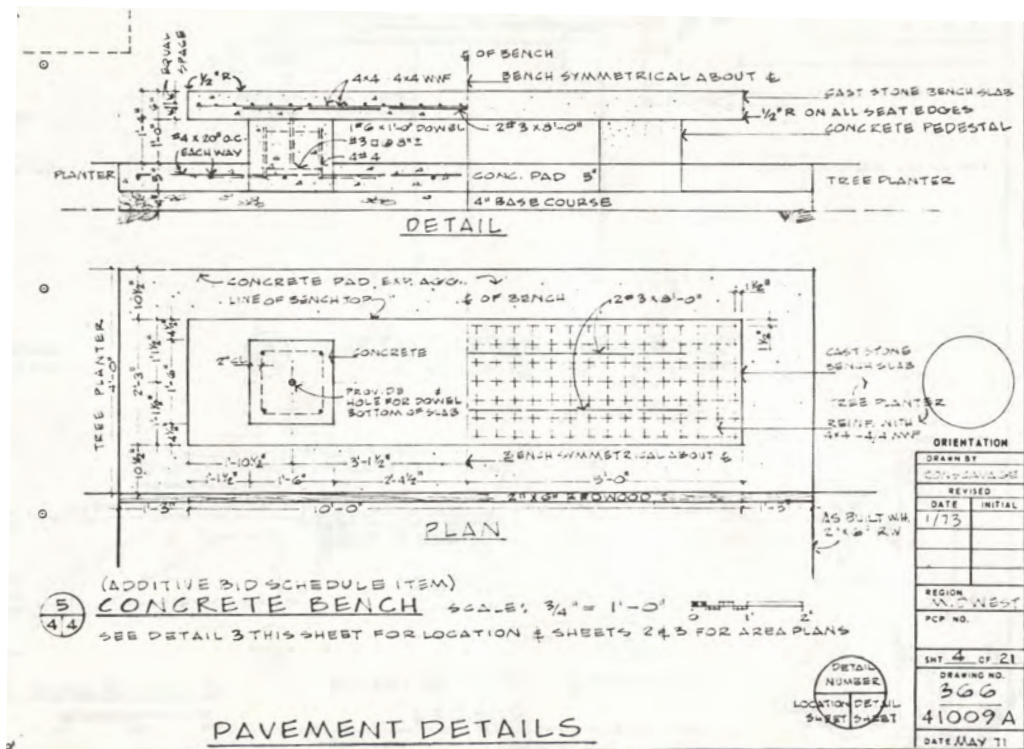 EQUAL
SPACE
1/2" R
4x4 - 4x4 WWF
℄ OF BENCH
BENCH SYMMETRICAL ABOUT ℄
CAST STONE BENCH SLAB
1/2" R ON ALL SEAT EDGES
CONCRETE PEDESTAL
1'-4"
1'-0"
#4 x 20" O.C.
EACH WAY
1#6 x 1'-0" DOWEL
#3 □ @ 8"±
4#4
2#3 x 8'-0"
PLANTER
CONC. PAD 5"
TREE PLANTER
4" BASE COURSE
DETAIL
CONCRETE PAD, EXP. AGG.
LINE OF BENCH TOP
℄ OF BENCH
2#3 x 8'-0"
1 1/2"
1 1/2"
TREE PLANTER
4'-0"
10 1/2"
2'-3"
10 1/2"
4 1/2"
1'-6"
4 1/2"
2"
CONCRETE
PROVIDE ℄
HOLE FOR DOWEL
BOTTOM OF SLAB
CAST STONE
BENCH SLAB
TREE PLANTER
REINF. WITH
4x4 - 4/4 WWF
BENCH SYMMETRICAL ABOUT ℄
1'-10 1/2"
3'-1 1/2"
1'-1 1/2"
1'-6"
2'-4 1/2"
5'-0"
2" x 6" REDWOOD
1'-3"
10'-0"
1'-3"
AS BUILT W.H.
2" x 6" R.W.
PLAN
(ADDITIVE BID SCHEDULE ITEM)
5
4 4
CONCRETE BENCH SCALE: 3/4" = 1'-0"
0 1' 2'
SEE DETAIL 3 THIS SHEET FOR LOCATION & SHEETS 2 & 3 FOR AREA PLANS
DETAIL
NUMBER
LOCATION DETAIL
SHEET SHEET
PAVEMENT DETAILS
ORIENTATION
DRAWN BY
REVISED
DATE INITIAL
1/73
REGION
MIDWEST
PCP NO.
SHT 4 OF 21
DRAWING NO.
366
41009A
DATE MAY 71